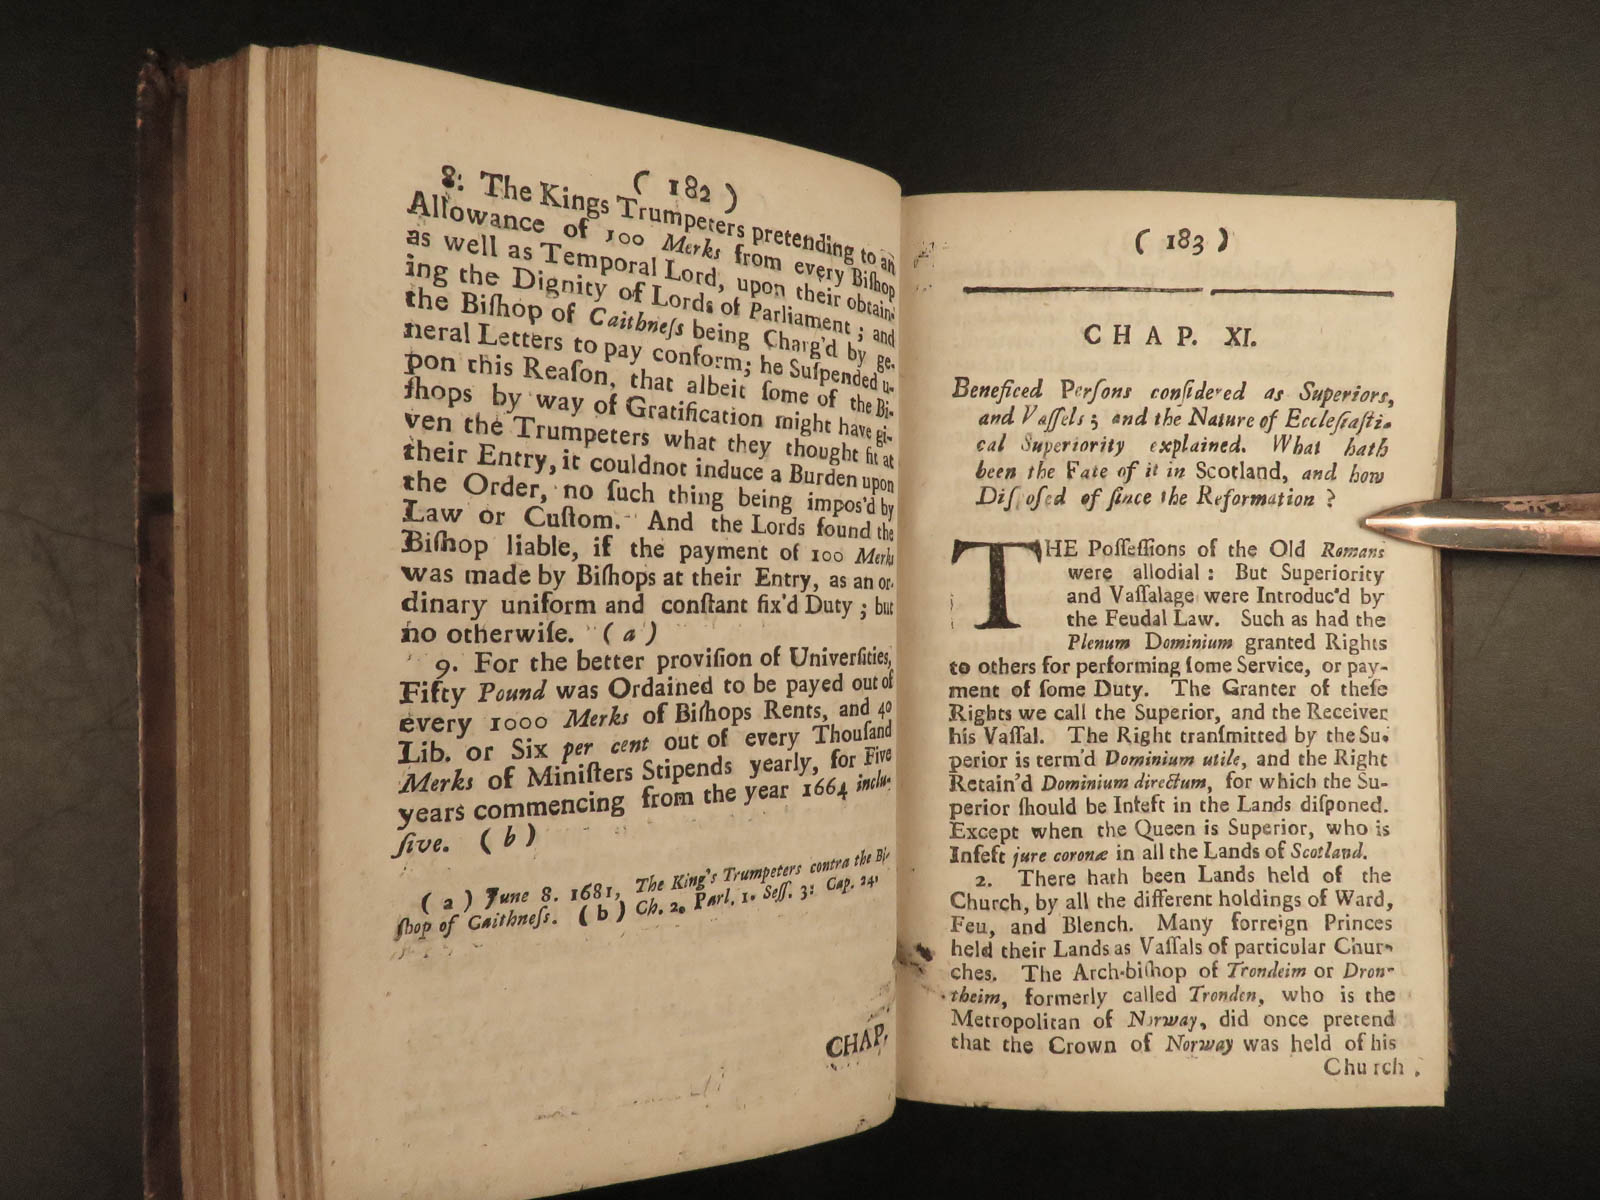 ( 182 )
8: The Kings Trumpeters pretending to an
Allowance of 100 Merks from every Biſhop
as well as Temporal Lord, upon their obtain-
ing the Dignity of Lords of Parliament ; and
the Biſhop of Caithneſs being Charg'd by ge-
neral Letters to pay conform; he Suſpended u-
pon this Reaſon, that albeit ſome of the Bi-
ſhops by way of Gratification might have gi-
ven the Trumpeters what they thought fit at
their Entry, it couldnot induce a Burden upon
the Order, no ſuch thing being impos'd by
Law or Cuſtom. And the Lords found the
Biſhop liable, if the payment of 100 Merks
was made by Biſhops at their Entry, as an or-
dinary uniform and conſtant fix'd Duty ; but
no otherwiſe. ( a )
9. For the better proviſion of Univerſities,
Fifty Pound was Ordained to be payed out of
every 1000 Merks of Biſhops Rents, and 40
Lib. or Six per cent out of every Thouſand
Merks of Miniſters Stipends yearly, for Five
years commencing from the year 1664 inclu-
ſive. ( b )
( a ) June 8. 1681, The King's Trumpeters contra the Bi-
ſhop of Caithneſs. ( b ) Ch. 2. Parl. 1. Seſſ. 3: Cap. 24.
CHAP.
( 183 )
CHAP. XI.
Beneficed Perſons conſidered as Superiors,
and Vaſſels ; and the Nature of Eccleſiaſti-
cal Superiority explained. What hath
been the Fate of it in Scotland, and how
Diſpoſed of ſince the Reformation ?
THE Poſſeſſions of the Old Romans
were allodial : But Superiority
and Vaſſalage were Introduc'd by
the Feudal Law. Such as had the
Plenum Dominium granted Rights
to others for performing ſome Service, or pay-
ment of ſome Duty. The Granter of theſe
Rights we call the Superior, and the Receiver
his Vaſſal. The Right tranſmitted by the Su-
perior is term'd Dominium utile, and the Right
Retain'd Dominium directum, for which the Su-
perior ſhould be Infeft in the Lands diſponed.
Except when the Queen is Superior, who is
Infeft jure coronæ in all the Lands of Scotland.
2. There hath been Lands held of the
Church, by all the different holdings of Ward,
Feu, and Blench. Many forreign Princes
held their Lands as Vaſſals of particular Chur-
ches. The Arch-biſhop of Trondeim or Dron-
theim, formerly called Tronden, who is the
Metropolitan of Norway, did once pretend
that the Crown of Norway was held of his
Church .